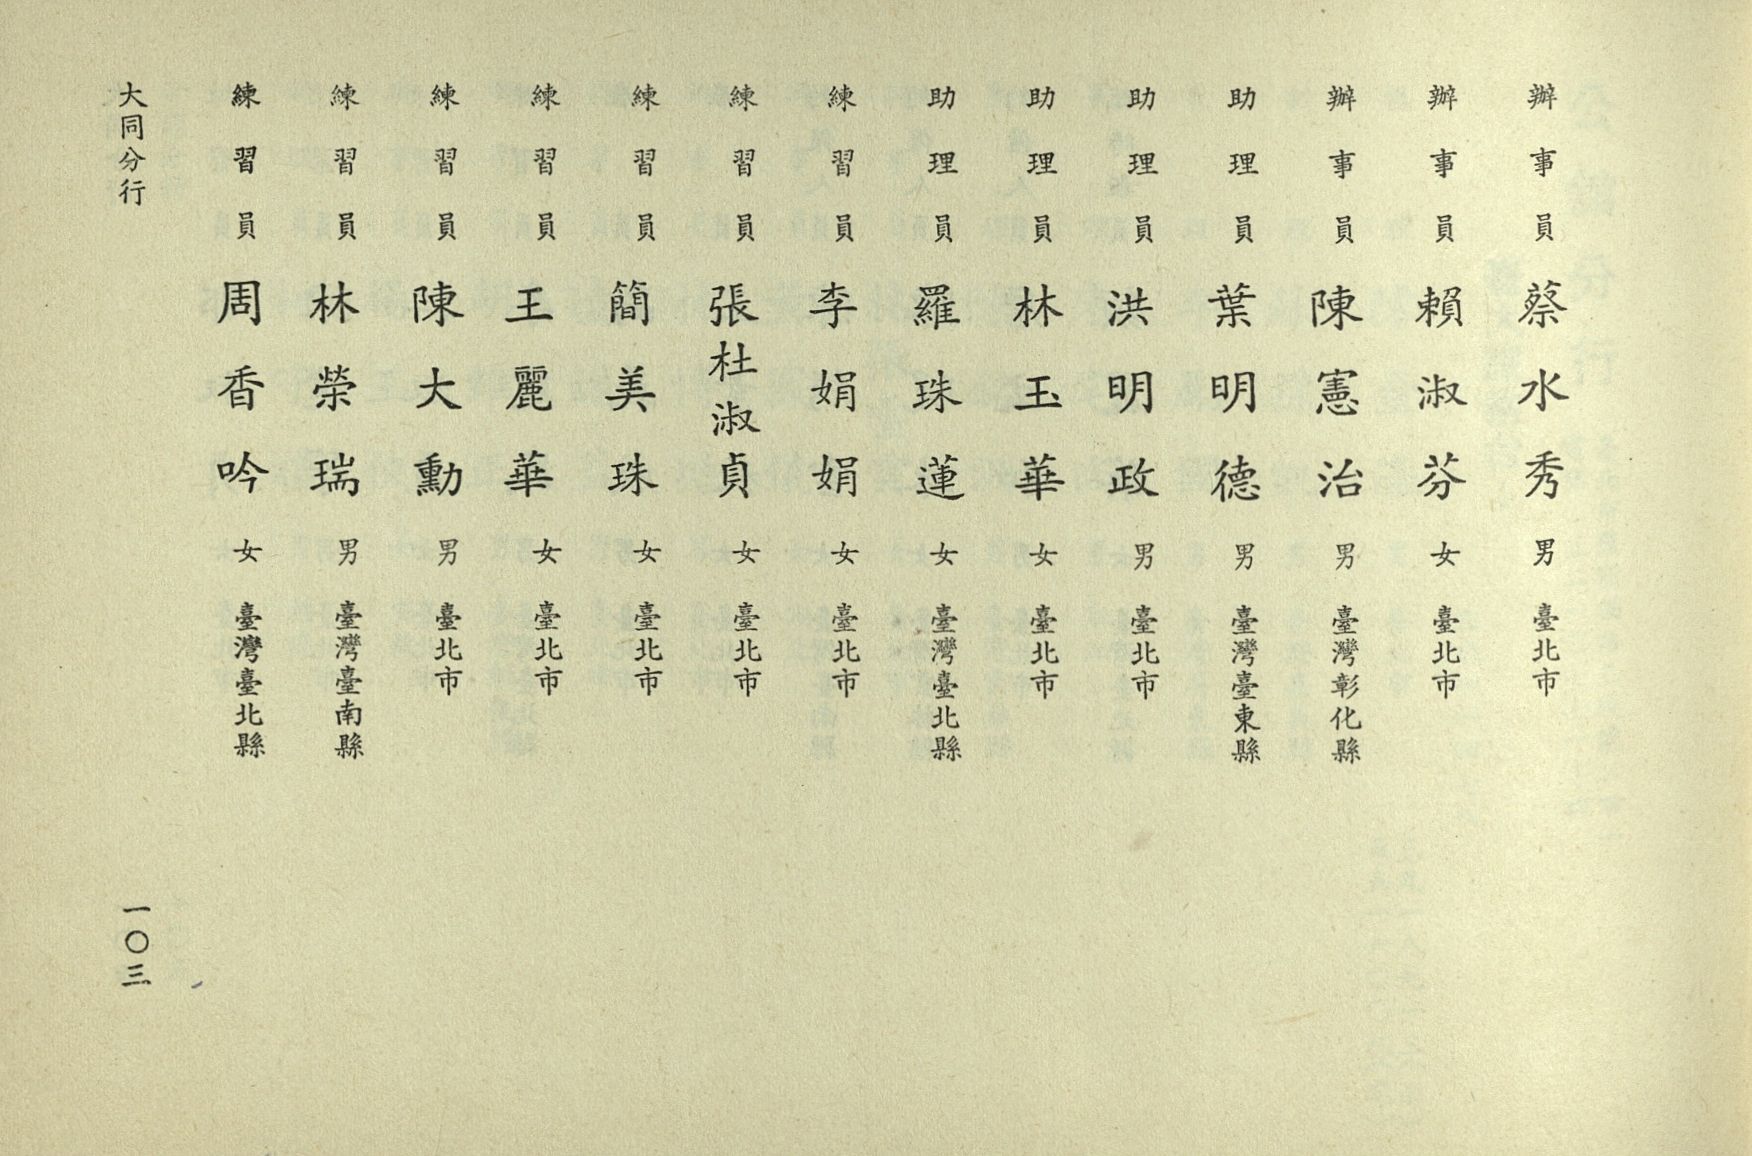 辦事員蔡水秀男臺北市
辦事員賴淑芬女臺北市
辦事員陳憲治男臺灣彰化縣
助理員葉明德男臺灣臺東縣
助理員洪明政男臺北市
助理員林玉華女臺北市
助理員羅珠蓮女臺灣臺北縣
練習員李娟娟女臺北市
練習員張杜淑貞女臺北市
練習員簡美珠女臺北市
練習員王麗華女臺北市
練習員陳大勳男臺北市
練習員林榮瑞男臺灣臺南縣
練習員周香吟女臺灣臺北縣
大同分行
一〇三